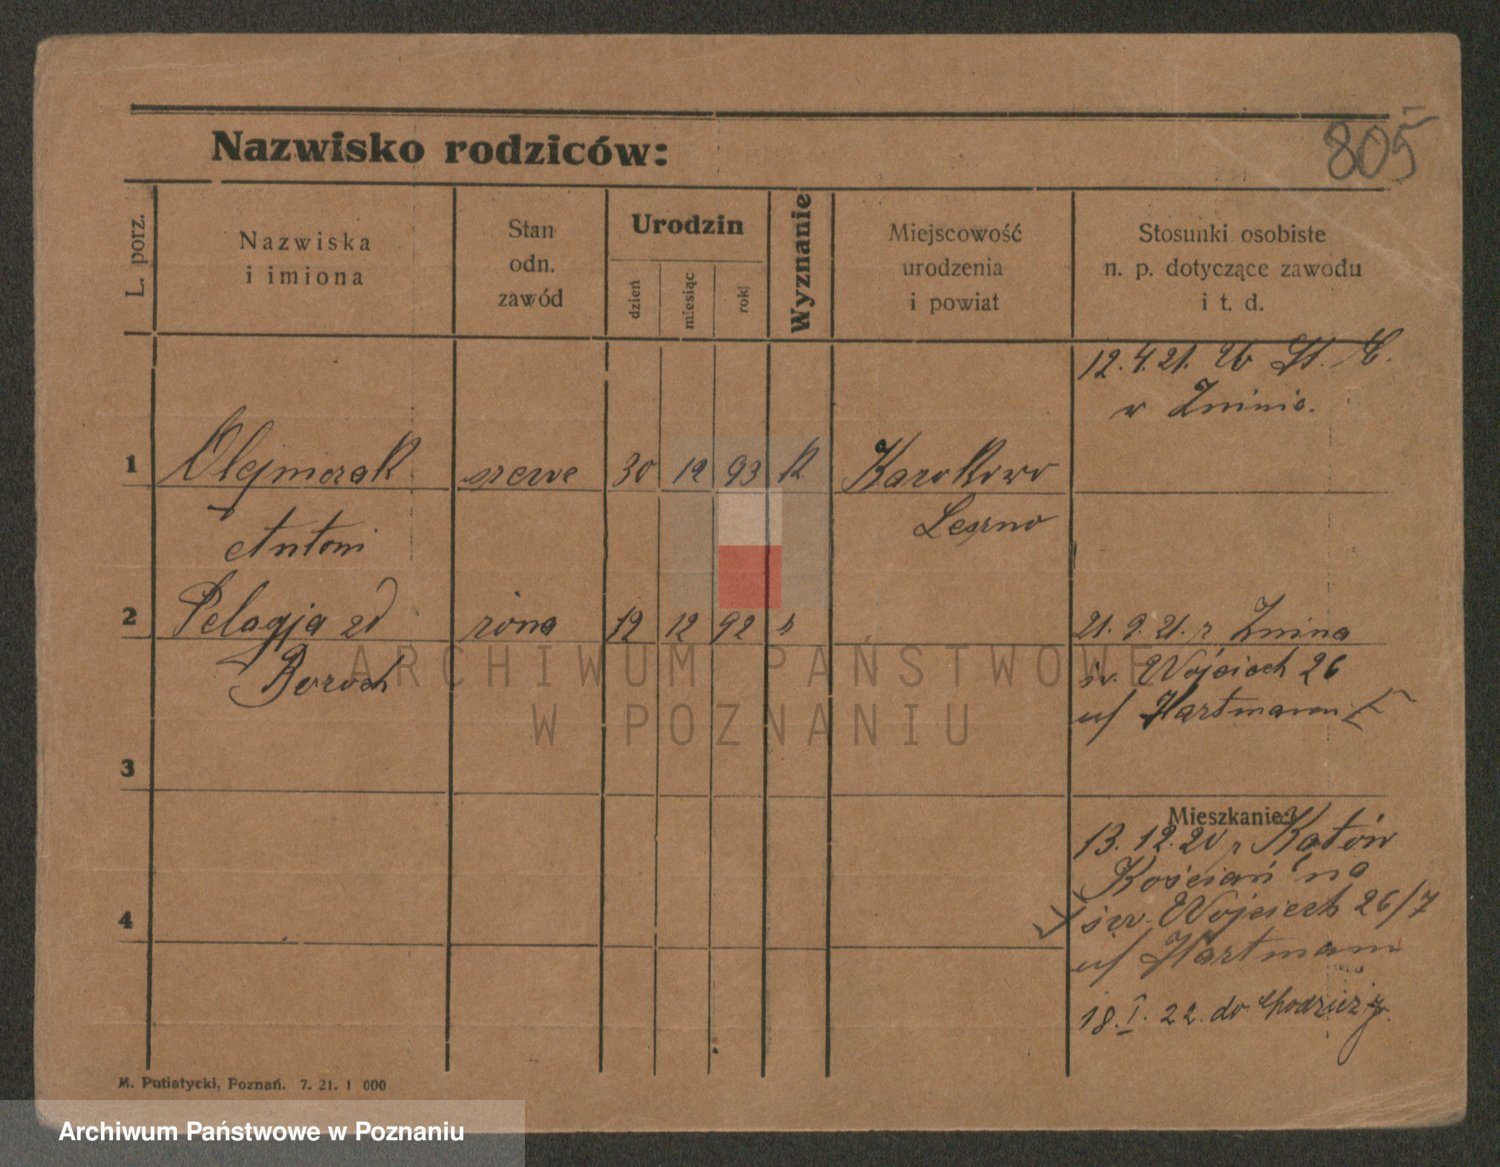 805
Nazwisko rodziców:
L. porz.
Nazwiska
i imiona
Stan
odn.
zawód
Urodzin
dzień
miesiąc
rok
Wyznanie
Miejscowość
urodzenia
i powiat
Stosunki osobiste
n. p. dotyczące zawodu
i t. d.
12. 4. 21.
w Zninie.
1 30 12 93 k
Leszno
Antoni
2 Pelagja zd żona 12 12 92 " 21. 9. 21. z Znina
św. Wojciech 26
u/ Hartmann
3
Mieszkanie:
13. 12. 20 z
Kościan na
4 św. Wojciech 26/7
u/ Hartmann
18. I. 22. do Chodzieży.
M. Putiatycki, Poznań. 7. 21. 1 000
ARCHIWUM PAŃSTWOWE
W POZNANIU
Archiwum Państwowe w Poznaniu